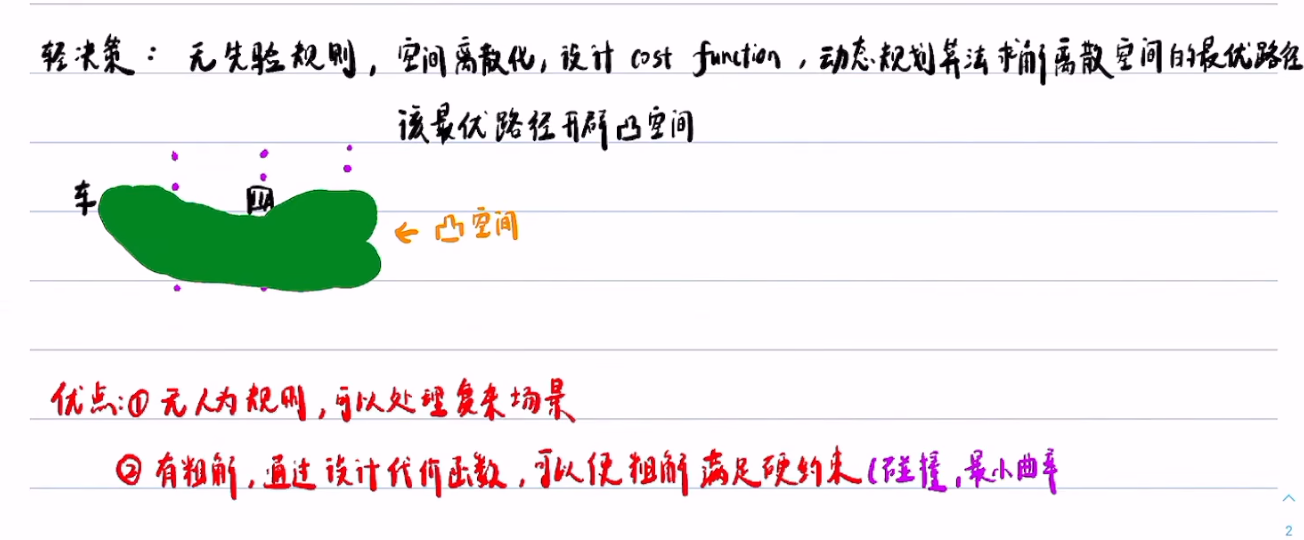 轻决策：无先验规则，空间离散化，设计 cost function，动态规划算法求解离散空间的最优路径
该最优路径开辟凸空间
车
← 凸空间
优点:① 无人为规则，可以处理复杂场景
② 有粗解，通过设计代价函数，可以使粗解满足硬约束(碰撞，最小曲率
2